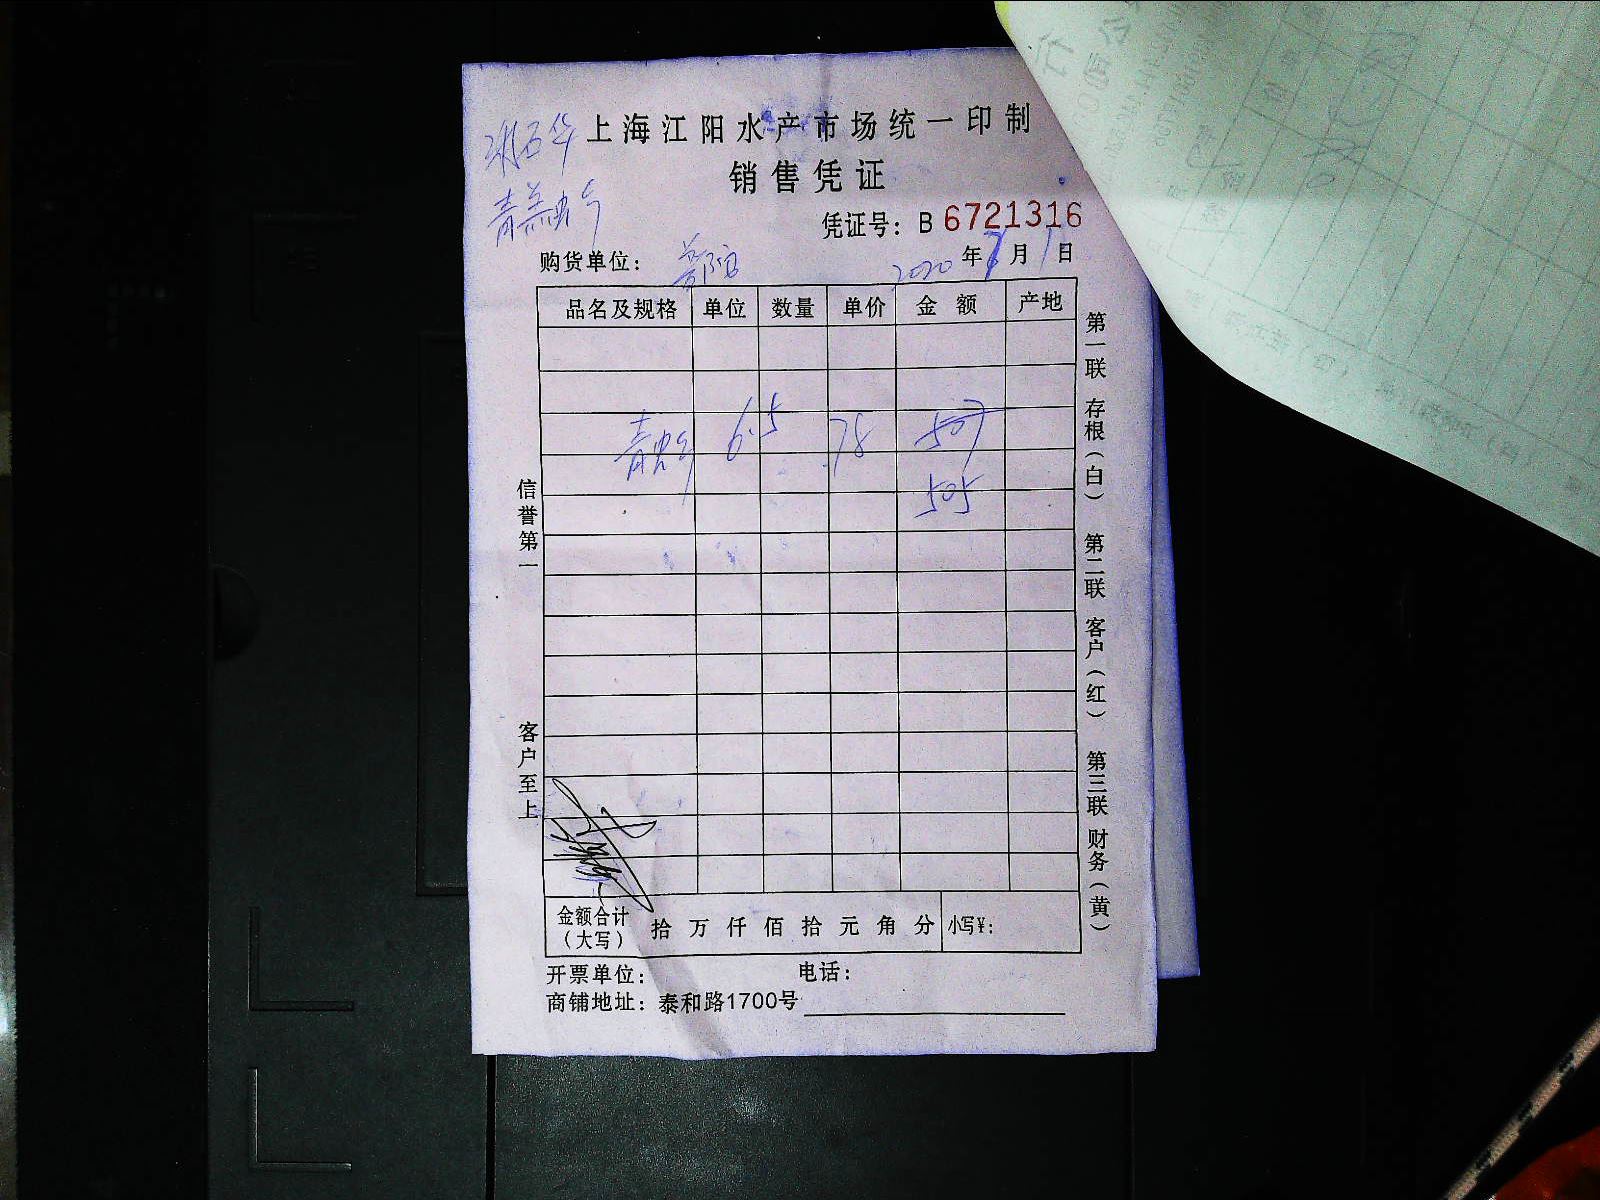 上海江阳水产市场统一印制
销售凭证
凭证号：B 6721316
购货单位：
2020年7月1日
品名及规格 单位 数量 单价 金额 产地
6.5 78 507
505
信誉第一
客户至上
第一联 存根（白） 第二联 客户（红） 第三联 财务（黄）
金额合计（大写） 拾 万 仟 佰 拾 元 角 分 小写¥：
开票单位： 电话：
商铺地址：泰和路1700号